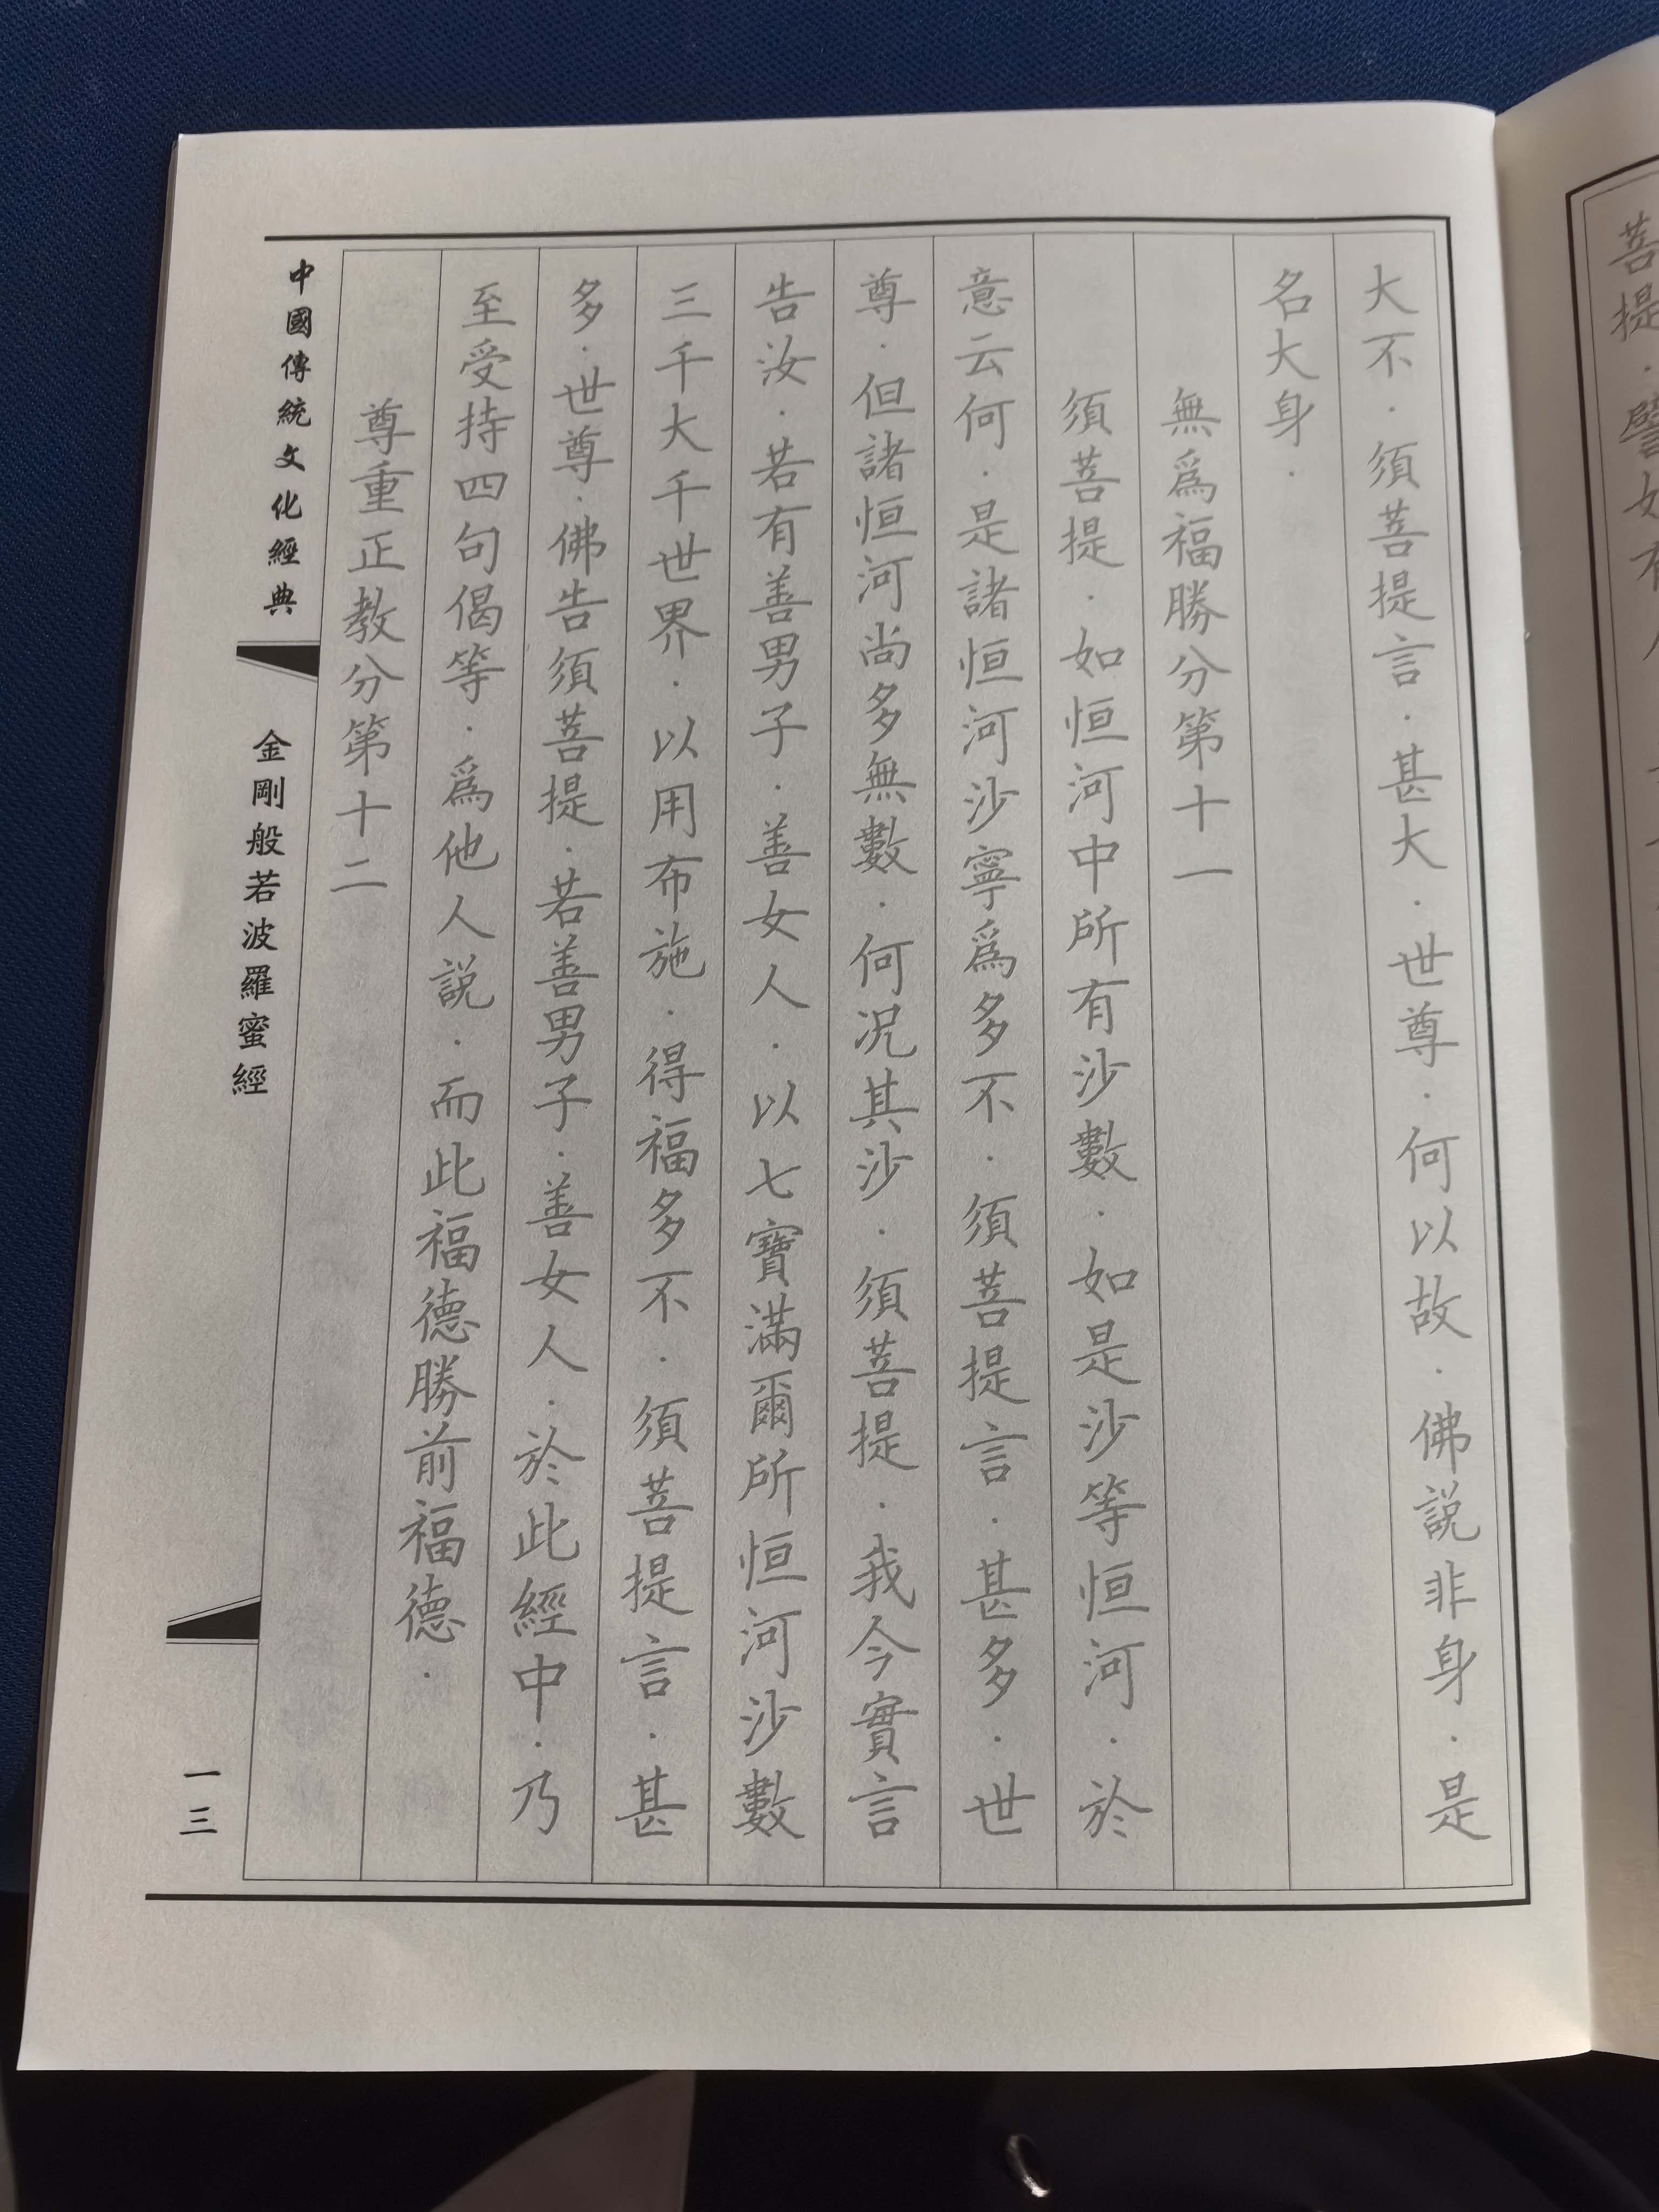 菩提．譬如有人
大不．須菩提言．甚大．世尊．何以故．佛説非身．是
名大身．
無爲福勝分第十一
須菩提．如恒河中所有沙數．如是沙等恒河．於
意云何．是諸恒河沙寧爲多不．須菩提言．甚多．世
尊．但諸恒河尚多無數．何况其沙．須菩提．我今實言
告汝．若有善男子．善女人．以七寶滿爾所恒河沙數
三千大千世界．以用布施．得福多不．須菩提言．甚
多．世尊．佛告須菩提．若善男子．善女人．於此經中．乃
至受持四句偈等．爲他人説．而此福德勝前福德．
尊重正教分第十二
中國傳統文化經典
金剛般若波羅蜜經
一三